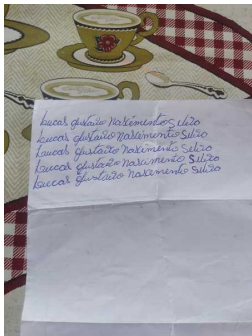 Lucas gustavo Nascimento Silva
Lucas gustavo Nascimento Silva
Lucas gustavo Nascimento Silva
Lucas gustavo Nascimento Silva
Lucas gustavo Nascimento Silva